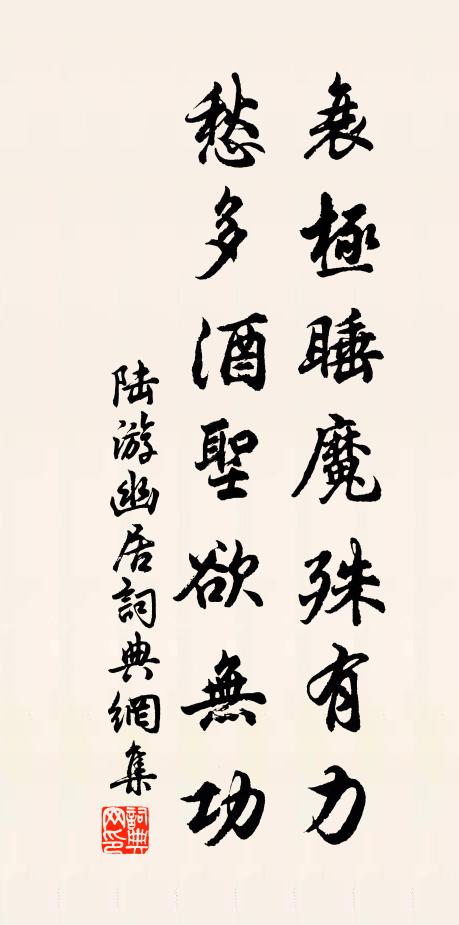 衰極睡魔殊有力
愁多酒聖欲無功
陸游幽居詞典網集
詞典网印